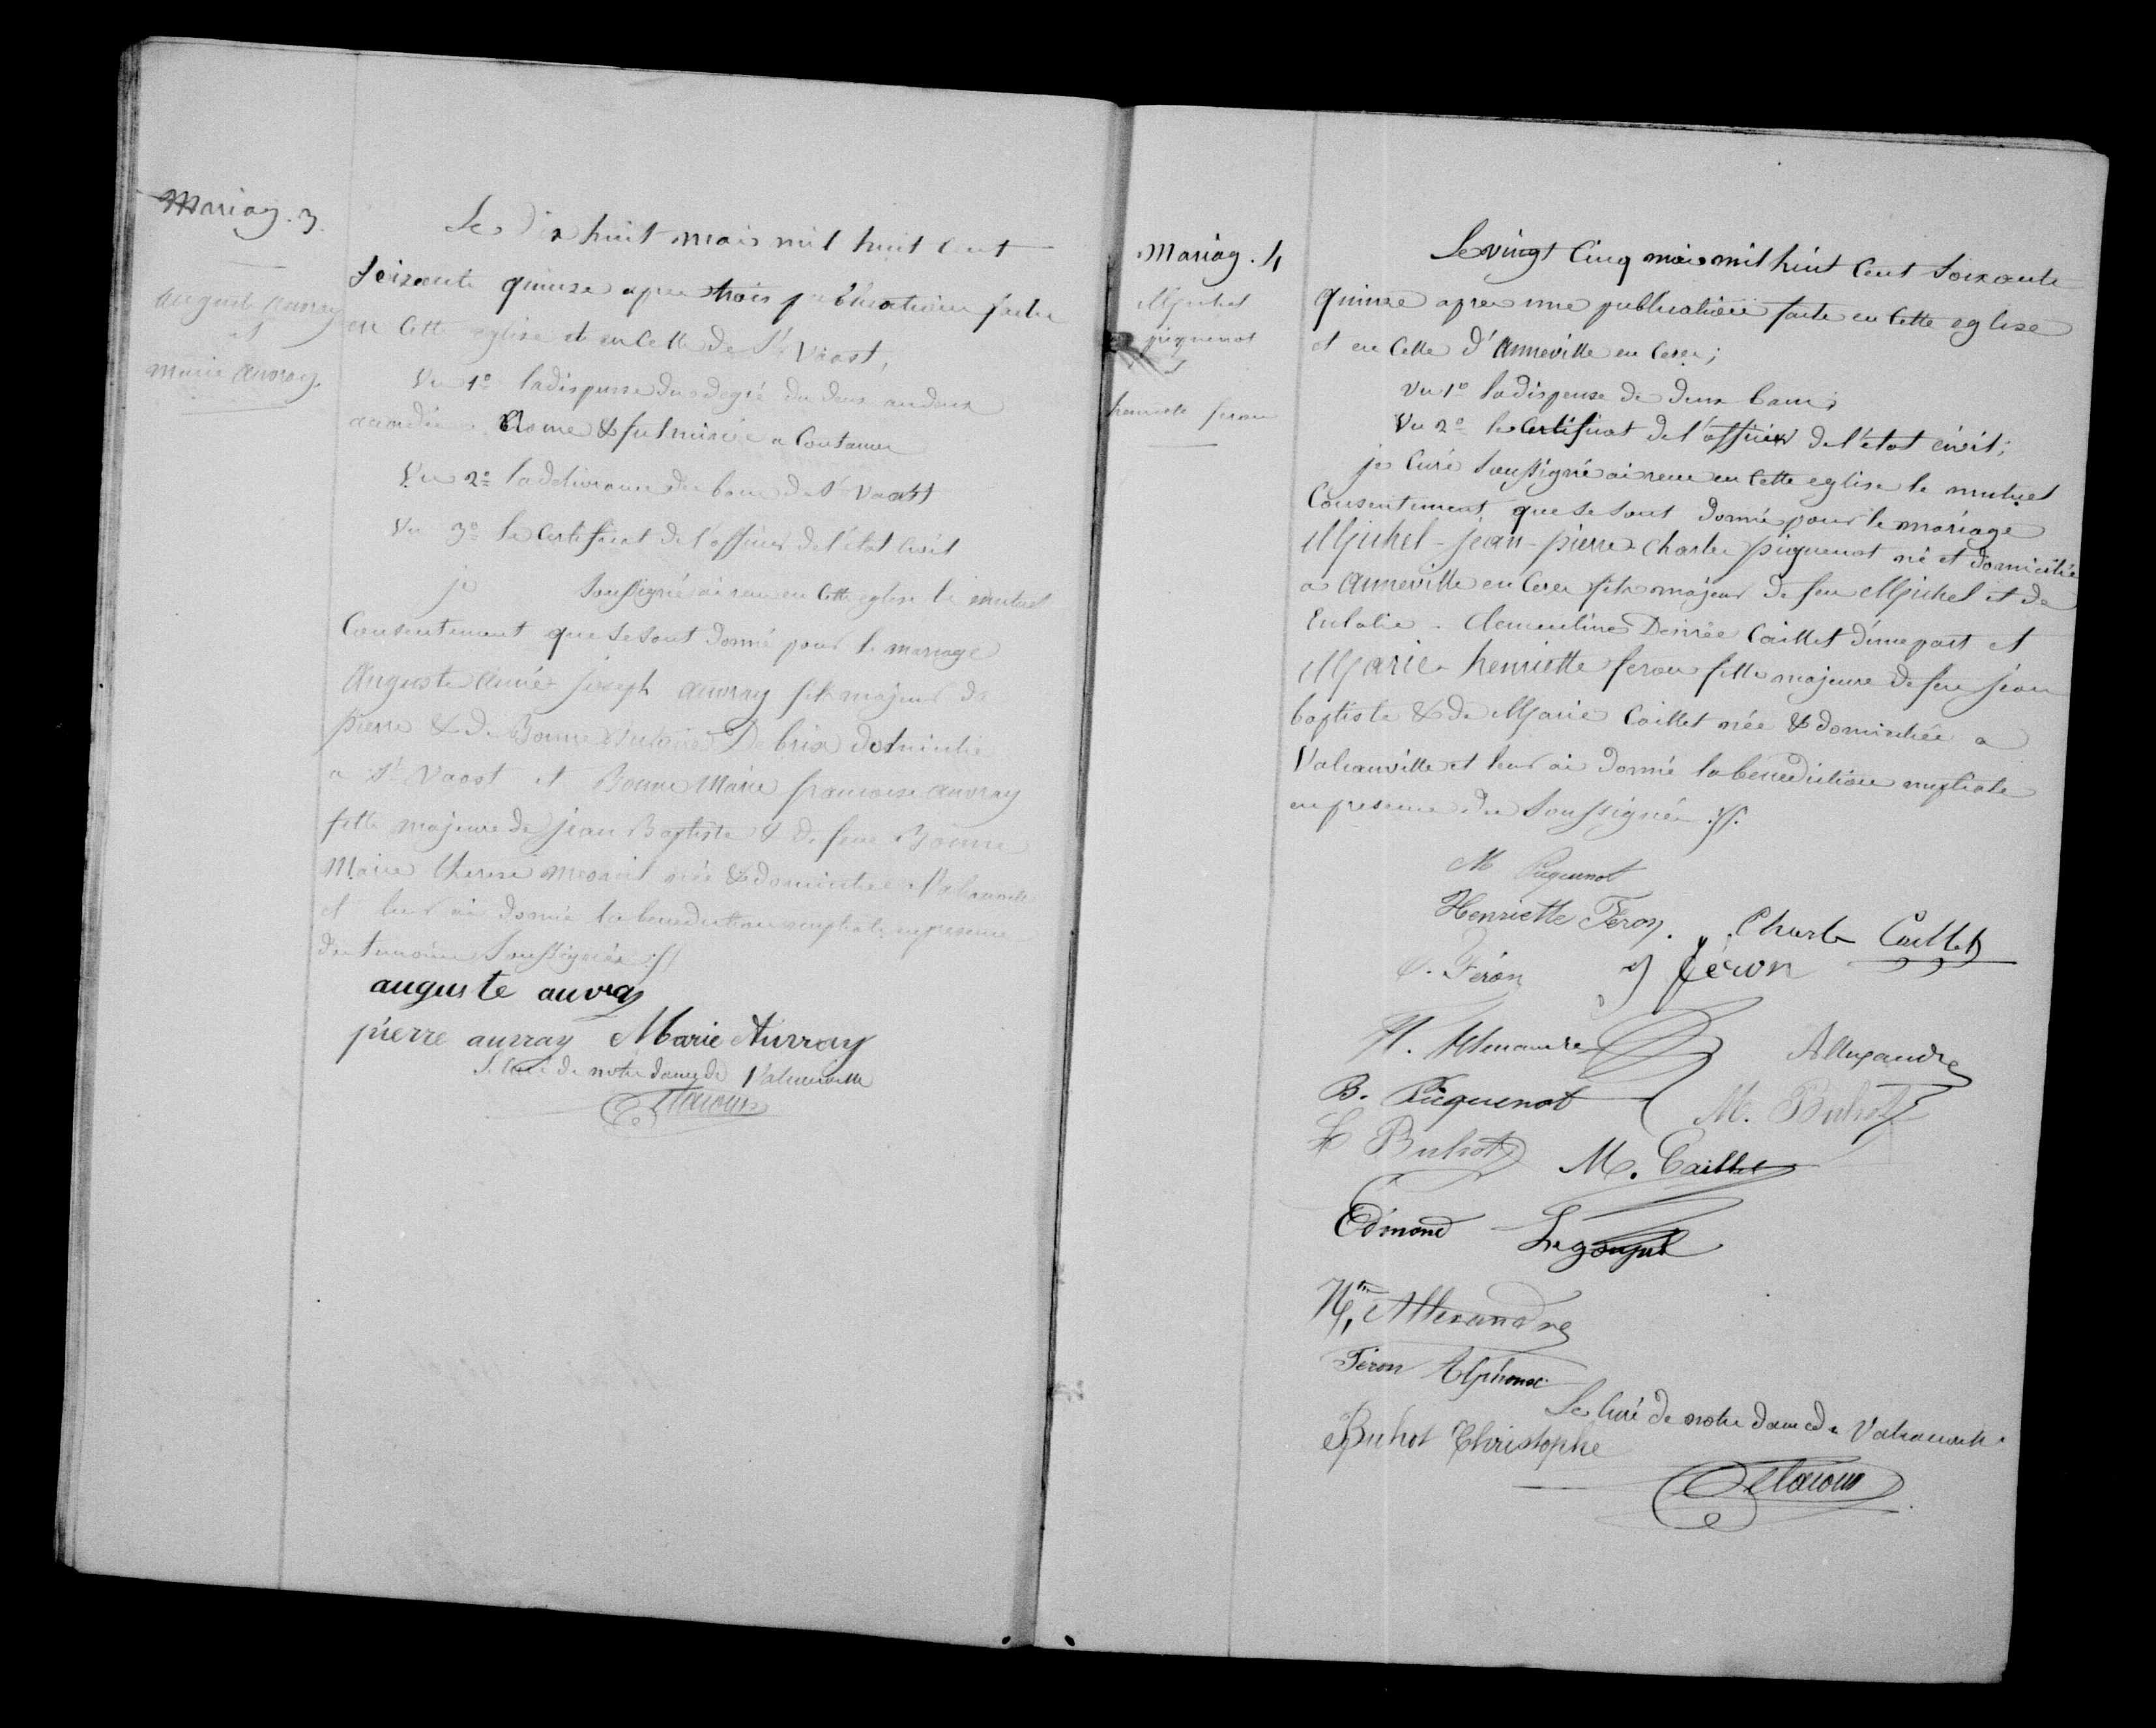 Mariag. 3.
auguste auvray
et
marie auvray.
Le Dix huit mais mil huit Cent
Soixante quinze apres trois publications faites
en Cette eglise et en Celle de St Vaast,
Vu 1º la dispense du degré du deux au deux
accordée a Rome & fulminée a Coutances
Vu 2º la delivrance des bans de St Vaast
Vu 3º le Certificat de l'officier de l'état Civil
je soussigné ai reçu en Cette eglise le mutuel
Consentement que se sont donné pour le mariage
Auguste aimé joseph auvray fils majeur de
pierre & de Bonne Debrix domicilié
a St Vaast et Bonne Marie francoise auvray
fille majeure de jean Baptiste & de feue Bonne
Marie therese née & domiciliée a Valcanville
et leur ai donné la benediction nuptiale en presence
des temoins soussignés ://
auguste auvray
pierre auvray Marie Auvray
Le Curé de notre dame de Valcanville
Mariag. 4
Michel
piquenot
et
henriette feron
Le vingt Cinq mais mil huit Cent Soixante
quinze apres une publication faite en Cette eglise
et en Celle d'Anneville en Cere;
Vu 1º la dispense de deux bans;
Vu 2º le Certificat de l'officier de l'état civil;
je Curé soussigné ai reçu en Cette eglise le mutuel
Consentement que se sont donné pour le mariage
Michel-jean-pierre-Charles piquenot né et domicilié
a Anneville en Cere fils majeur de feu Michel et de
Eulalie-Clementine Desirée Caillet d'une part et
Marie-henriette feron fille majeure de feu jean
baptiste & de Marie Caillet née & domiciliée a
Valcanville et leur ai donné la benediction nuptiale
en presence des Soussignés ://.
M Piquenot
Henriette Feron. Charles Caillet
Féron J féron
Allexandre
B. Picquenot M. Buhot
Buhot M. Caillet
Edmond Legoupil
Allexandre
Féron Alphonse
Le Curé de notre dame de Valcanville
Buhot Christophe